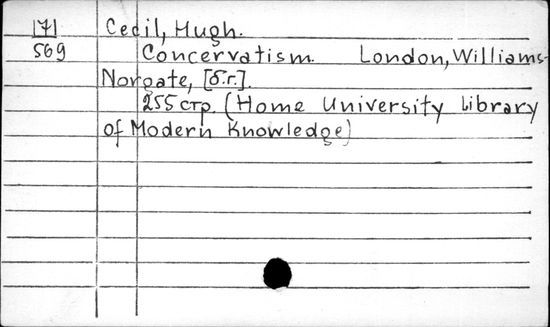 [7] Cecil, Hugh.
569 Concervatism. London, Williams-
Norgate, [б.г.].
255 стр. (Home University Library
of Modern Knowledge)